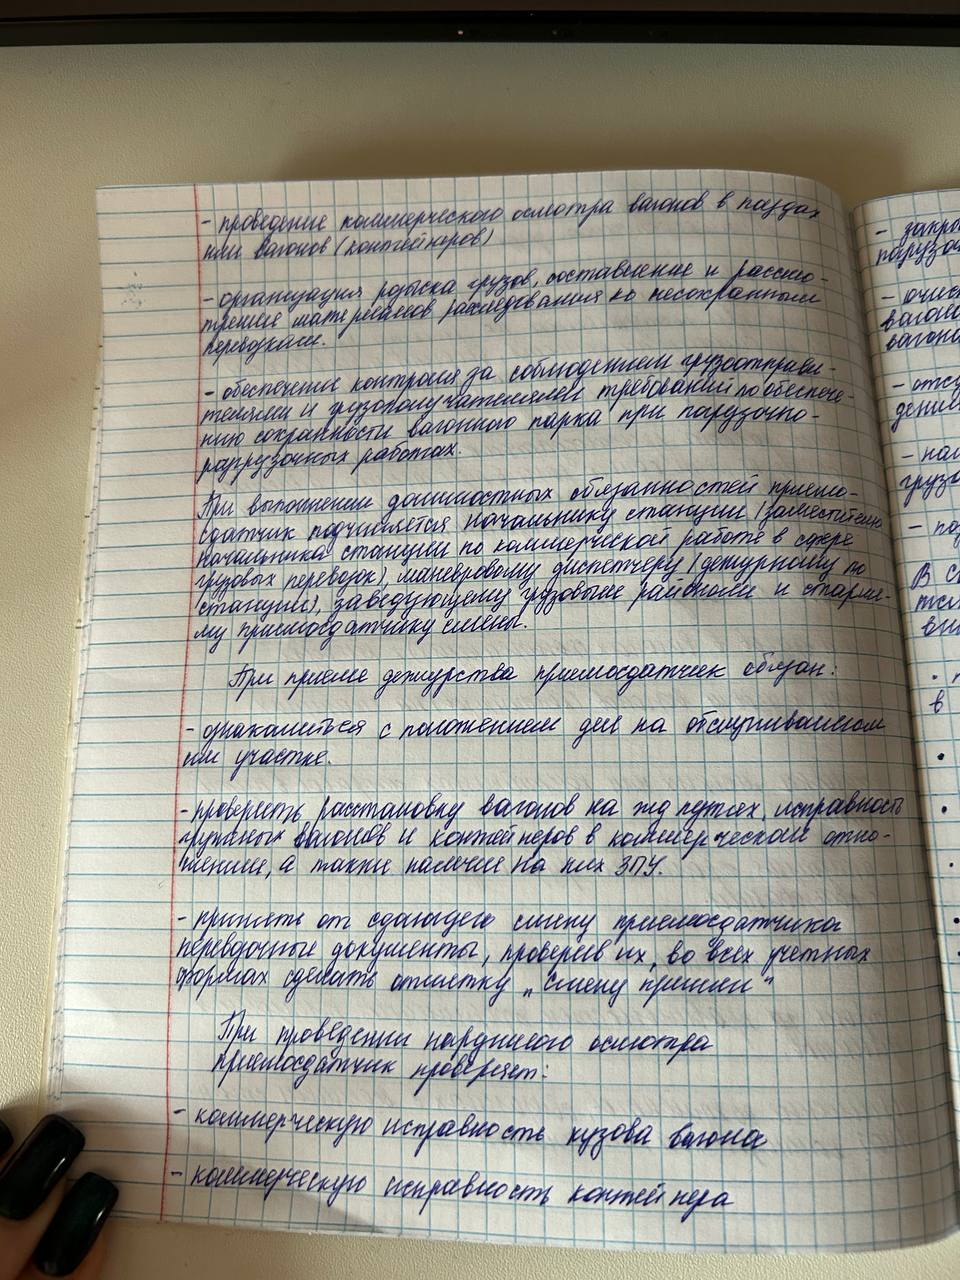 - проведение коммерческого осмотра вагонов в поездах
или вагонов (контейнеров)
- организация розыска грузов, составление и рассмо-
трение материалов расследования по несохранным
перевозкам.
- обеспечение контроля за соблюдением грузоотправи-
телями и грузополучателями требований по обеспече-
нию сохранности вагонного парка при погрузочно-
разгрузочных работах.
При выполнении должностных обязанностей приемо-
сдатчик подчиняется начальнику станции (заместителю
начальника станции по коммерческой работе в сфере
грузовых перевозок), маневровому диспетчеру (дежурному по
станции), заведующему грузовым районом и старше-
му приемосдатчику смены.
При приеме дежурства приемосдатчик обязан:
- ознакомиться с положением дел на обслуживаемом
им участке.
- проверить расстановку вагонов на жд путях, исправность
груженых вагонов и контейнеров в коммерческом отно-
шении, а также наличие на них ЗПУ.
- принять от сдающего смену приемосдатчика
перевозочные документы, проверив их, во всех учетных
формах сделать отметку „Смену принял"
При проведении наружного осмотра
приемосдатчик проверяет:
- коммерческую исправность кузова вагона
- коммерческую исправность контейнера
- 
- 
вагоно
вагона
- 
- 
грузо
- 
В
в